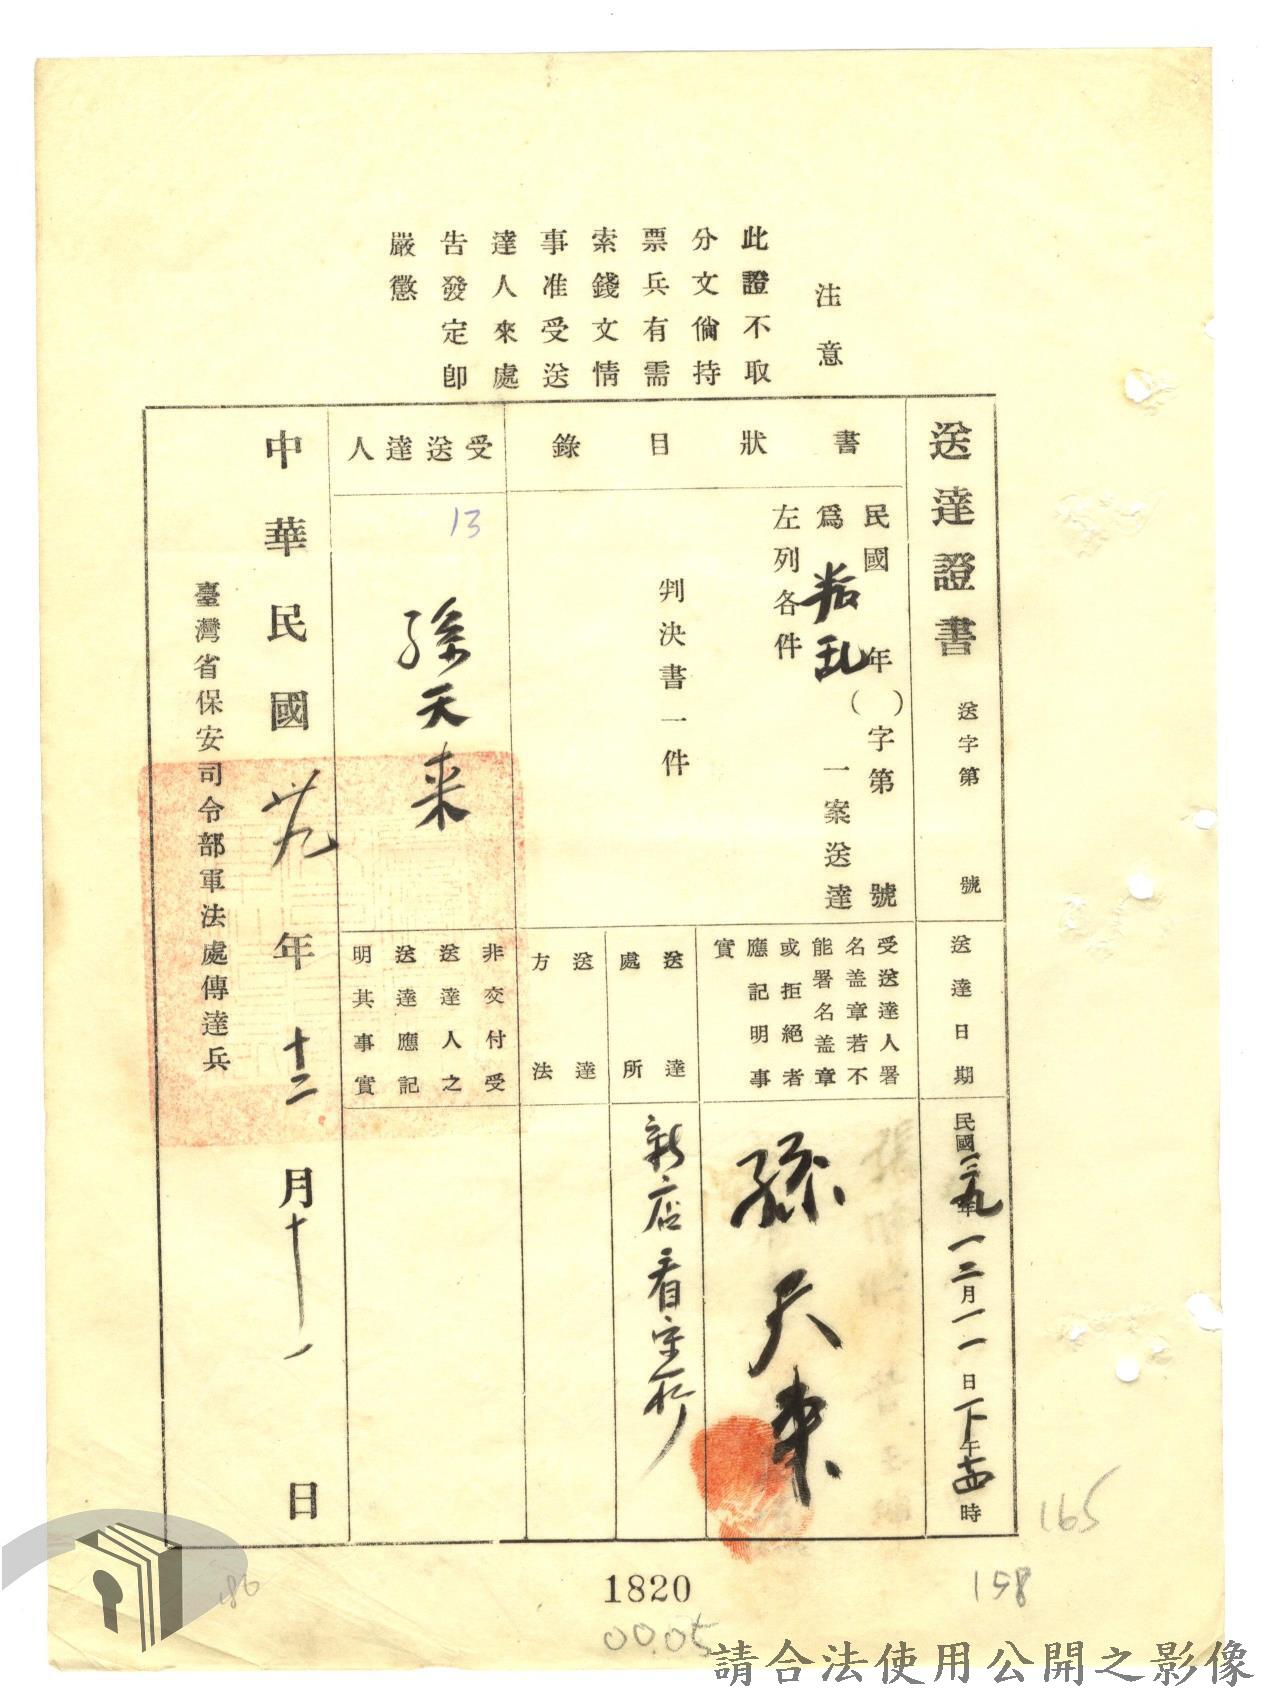 注意
此證不取
分文倘持
票兵有需
索錢文情
事准受送
達人來處
告發定卽
嚴懲
送達證書 送字第 號
書狀目錄
民國 年( )字第 號
爲叛乱一案送達
左列各件
判決書一件
受送達人
13
孫天来
中華民國卅九年十二月十一日
臺灣省保安司令部軍法處傳達兵
送達日期
民國三九年一二月一一日下午 時
受送達人署
名盖章若不
能署名盖章
或拒絕者
應記明事
實
孫天来
送達
處所
新店看守所
送達
方法
非交付受
送達人之
送達應記
明其事實
165
158
1820
00.05
186
請合法使用公開之影像